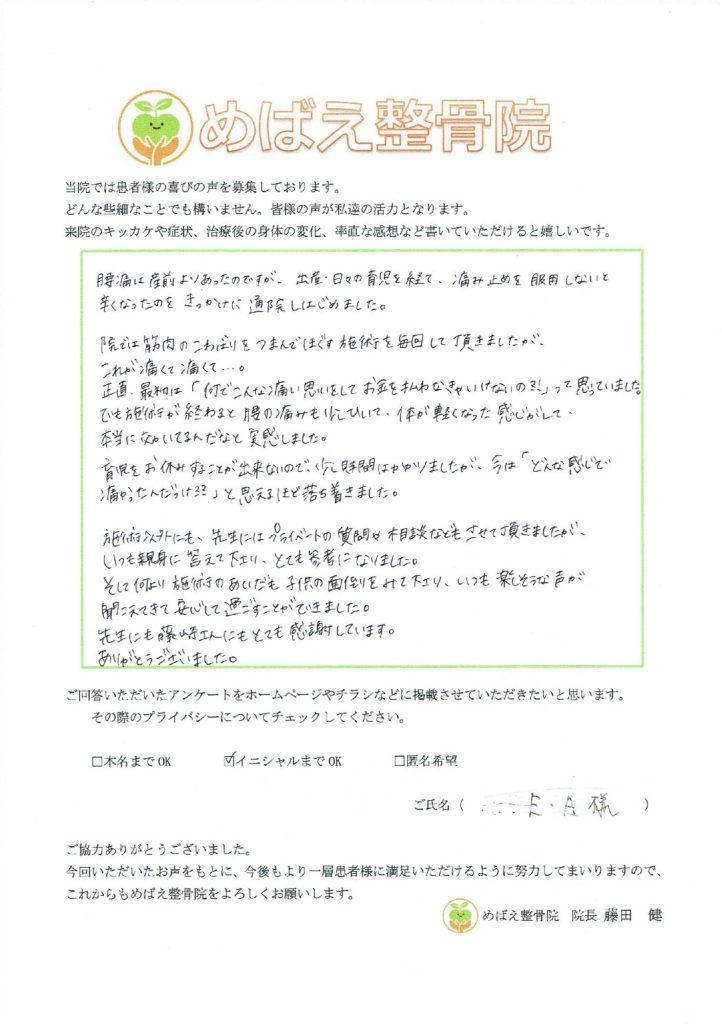 めばえ整骨院
当院では患者様の喜びの声を募集しております。
どんな些細なことでも構いません。皆様の声が私達の活力となります。
来院のキッカケや症状、治療後の身体の変化、率直な感想など書いていただけると嬉しいです。
腰痛は産前よりあったのですが、出産・日々の育児を経て、痛み止めを服用しないと
辛くなったのをきっかけに通院しはじめました。
院では筋肉のこわばりをつまんでほぐす施術を毎回して頂きましたが、
これが痛くて痛くて…。
正直、最初は「何でこんな痛い思いをしてお金を払わなきゃいけないの?!」って思っていました。
でも施術が終わると腰の痛みも少しひいて、体が軽くなった感じがして、
本当に効いてるんだなと実感しました。
育児をお休みすることが出来ないので、少し時間はかかりましたが、今は「どんな感じで
痛かったんだっけ??」と思えるほど落ち着きました。
施術以外にも、先生にはプライベートの質問や相談などもさせて頂きましたが、
いつも親身に答えて下さり、とても参考になりました。
そして何より施術のあいだも子供の面倒をみて下さり、いつも楽しそうな声が
聞こえてきて安心して過ごすことができました。
先生にも藤崎さんにもとても感謝しています。
ありがとうございました。
ご回答いただいたアンケートをホームページやチラシなどに掲載させていただきたいと思います。
その際のプライバシーについてチェックしてください。
□本名までOK ☑イニシャルまでOK □匿名希望
ご氏名（ E・A 様 ）
ご協力ありがとうございました。
今回いただいたお声をもとに、今後もより一層患者様に満足いただけるように努力してまいりますので、
これからもめばえ整骨院をよろしくお願いします。
めばえ整骨院 院長 藤田 健